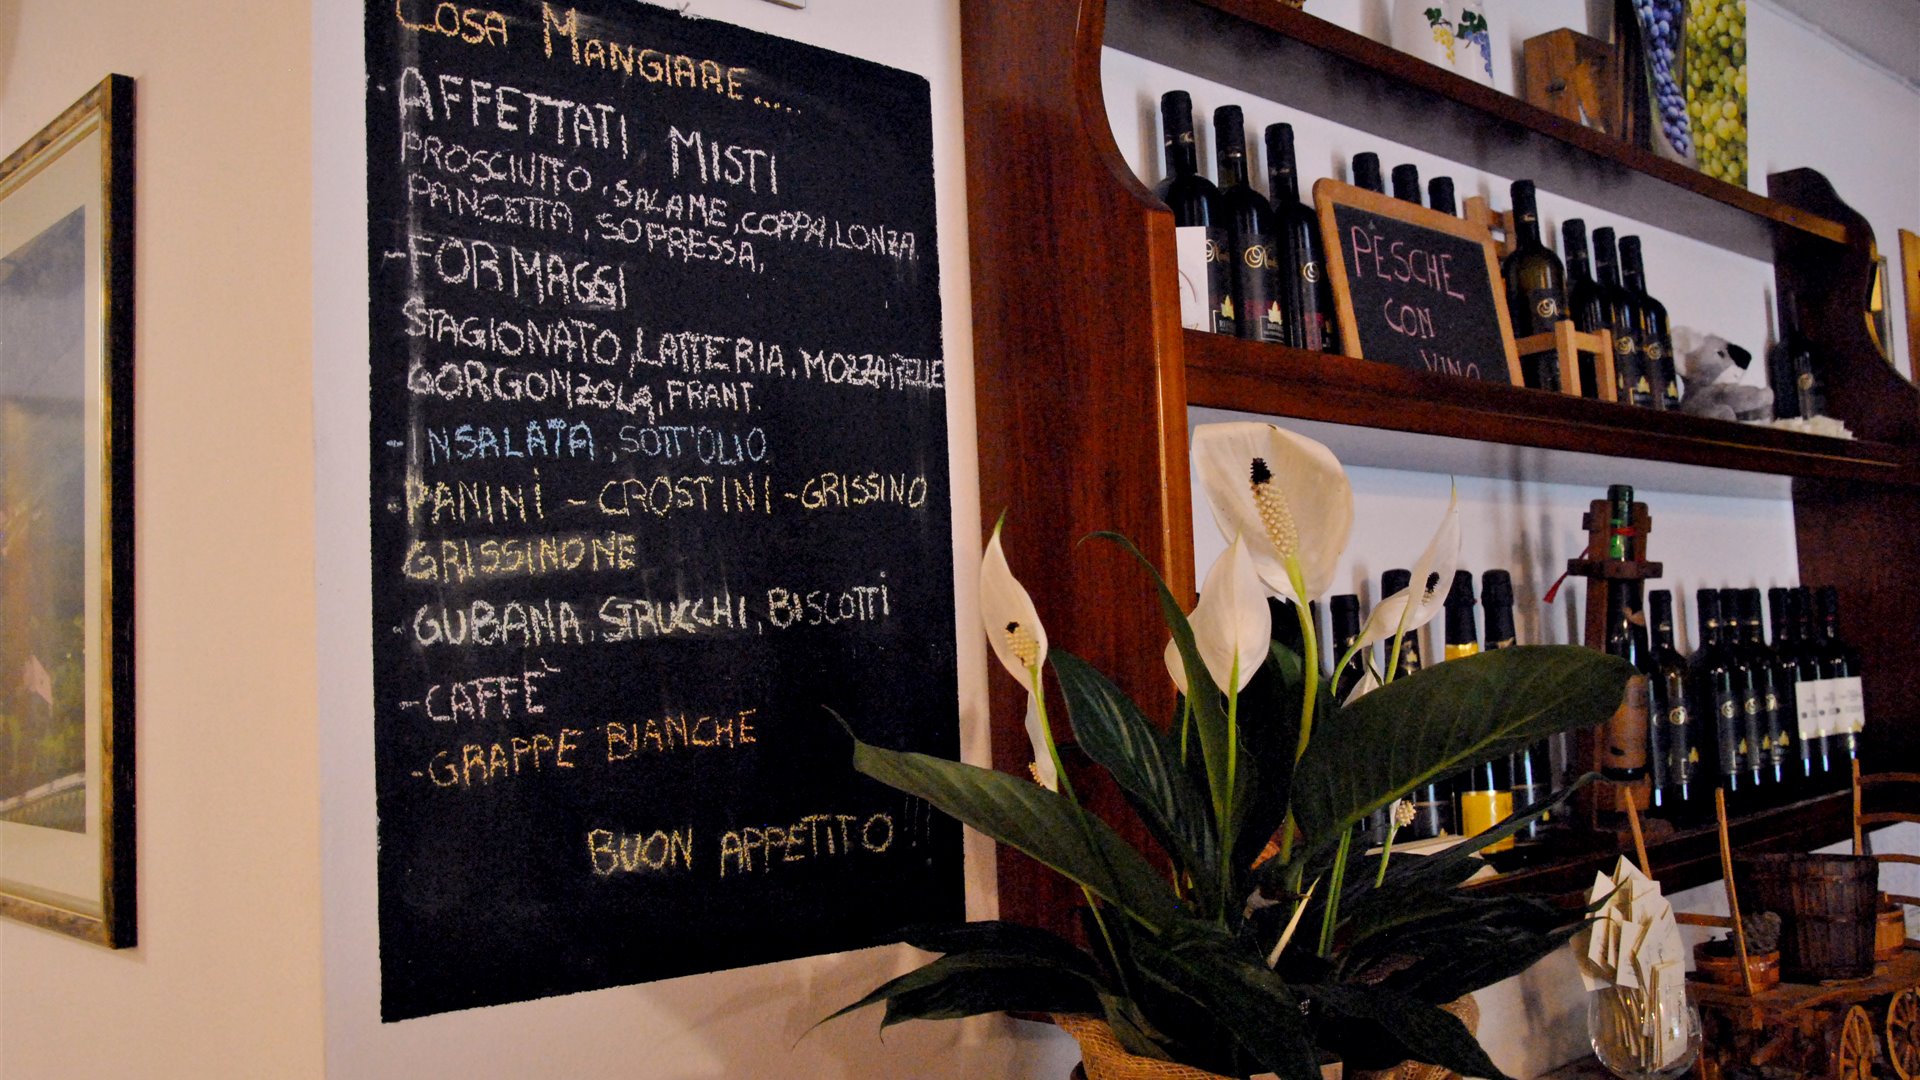 COSA MANGIARE.....
- AFFETTATI MISTI
PROSCIUTTO, SALAME, COPPA, LONZA,
PANCETTA, SOPRESSA,
- FORMAGGI
STAGIONATO, LATTERIA, MOZZARELLE
GORGONZOLA, FRANT.
- INSALATA, SOTT'OLIO.
- PANINI - CROSTINI - GRISSINO
GRISSINONE
- GUBANA, STRUCCHI, BISCOTTI
- CAFFÈ
- GRAPPE BIANCHE
BUON APPETITO !!!
PESCHE
CON
VINO